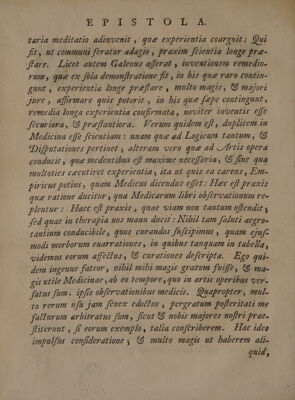 EPISTOLA.
taria meditatio adinvenit, quæ experientia coarguit: Qui
fit, ut communi feratur adagio, praxim scientia longe præ-
stare. Licet autem Galenus asserat, inventionem remedio-
rum, quæ ex sola demonstratione fit, in his quæ raro contin-
gunt, experientia longe præstare, multo magis, & majori
jure, affirmare quis poterit, in his quæ sæpe contingunt,
remedia longa experientia confirmata, noviter inventis esse
securiora, & præstantiora. Verum quidem est, duplicem in
Medicina esse scientiam: unam quæ ad Logicam tantum, &
Disputationes pertinet; alteram vero quæ ad Artis opera
conducit, quæ medentibus est maxime necessaria, & sine qua
multoties cæcutiret experientia, ita ut quis ea carens, Em-
piricus potius, quam Medicus dicendus esset: Hæc est praxis
quæ ratione ducitur, qua Medicarum libri observationum re-
pleutur: Hæc est praxis, quæ viam non tantum ostendit;
sed quæ in therapia nos manu ducit: Nihil tam saluti ægro-
tantium conducibile, quos curandos suscipimus, quam ejus-
modi morborum enarrationes, in quibus tanquam in tabella,
videmus eorum affectus, & curationes descripta. Ego qui-
dem ingenue fateor, nihil mihi magis gratum fuisse, & ma-
gis utile Medicinæ, ab eo tempore, quo in artis operibus ver-
satus sum. ipsis observationibus medicis. Quapropter, mul-
to rerum usu jam senex edoctus, pergratum posteritati me
facturum arbitratus sum, sicut & nobis majores nostri præ-
stiterunt, si eorum exemplo, talia conscriberem. Hac ideo
impulsus consideratione; & multo magis ut haberem ali-
quid,